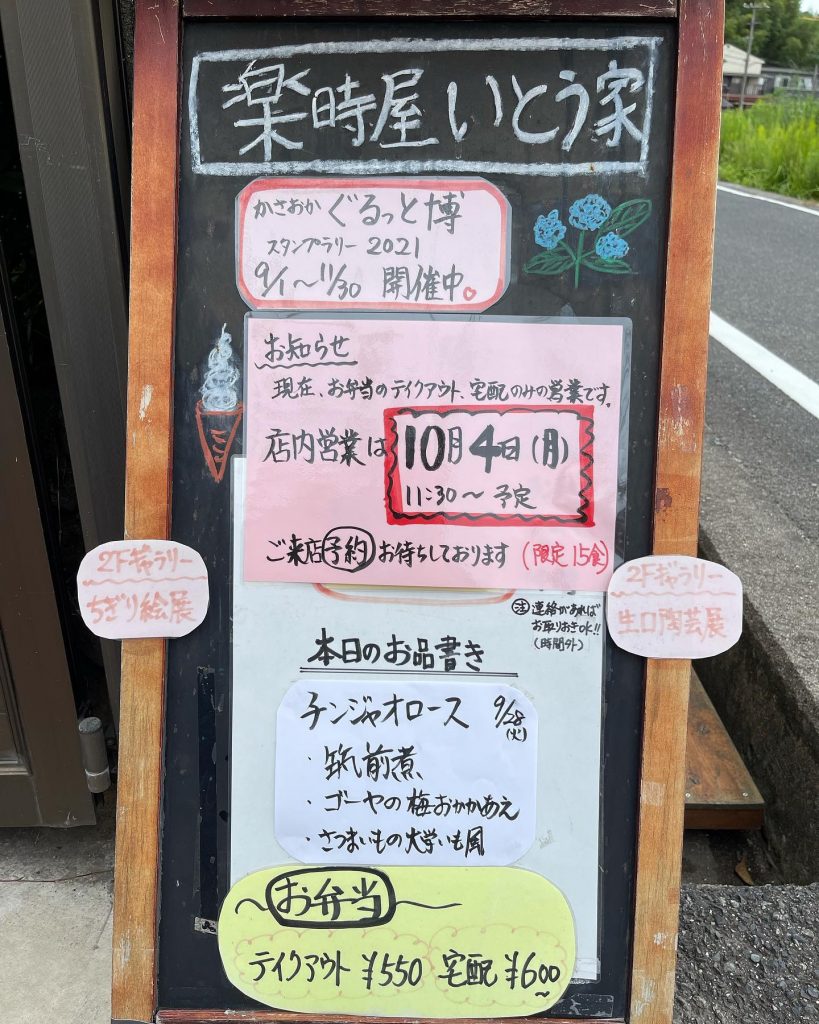 楽時屋いとう家
かさおか ぐるっと博
スタンプラリー 2021
9/1〜11/30 開催中
お知らせ
現在、お弁当のテイクアウト、宅配のみの営業です。
店内営業は 10月4日(月)
11:30〜 予定
ご来店予約お待ちしております (限定15食)
2Fギャラリー
ちぎり絵展
2Fギャラリー
生口陶芸展
注 連絡があれば
お取りおきOK!!
(時間外)
本日のお品書き
チンジャオロース 9/28
(火)
・筑前煮
・ゴーヤの梅おかかあえ
・さつまいもの大学いも風
〜お弁当〜
テイクアウト ¥550 宅配 ¥600